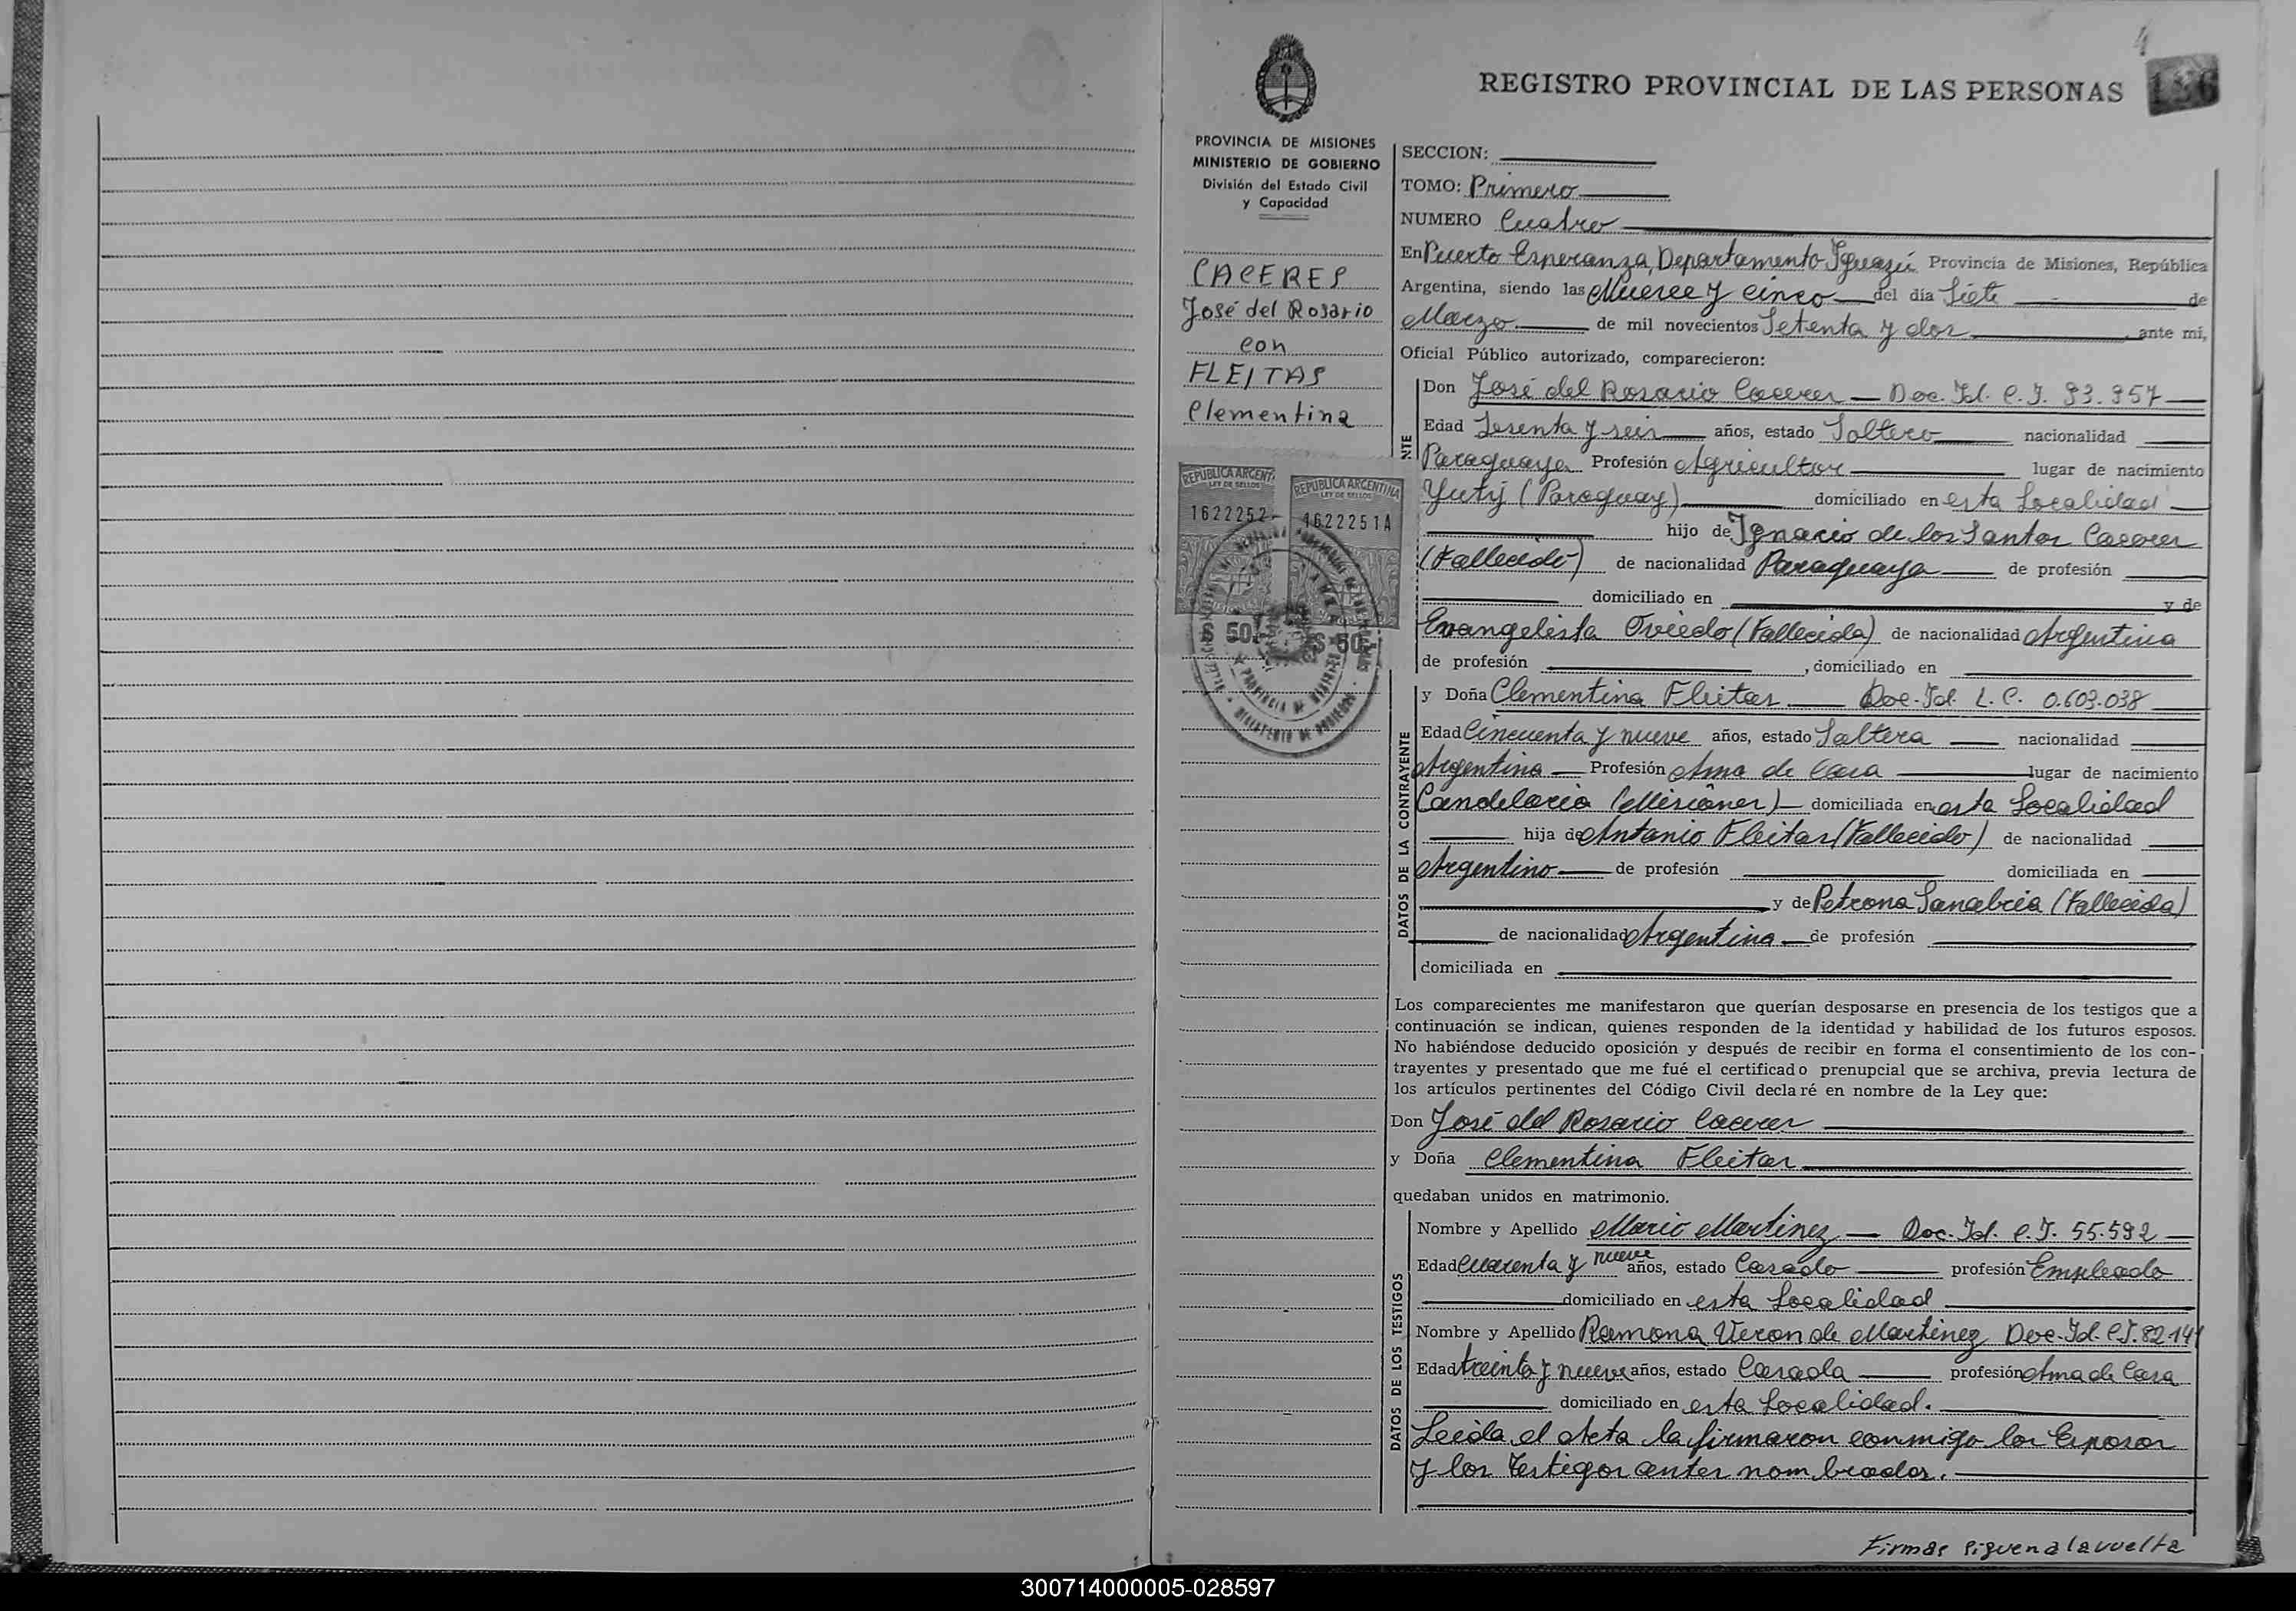 REGISTRO PROVINCIAL DE LAS PERSONAS
PROVINCIA DE MISIONES
MINISTERIO DE GOBIERNO
División del Estado Civil
y Capacidad
CACERES
José del Rosario
con
FLEITAS
Clementina
REPUBLICA ARGENT
LEY DE SELLOS
1622252
$ 50
REPUBLICA ARGENTINA
LEY DE SELLOS
1622251A
$ 50
SECCION:
TOMO: Primero
NUMERO Cuatro
En Puerto Esperanza, Departamento Iguazú Provincia de Misiones, República
Argentina, siendo las Nueve y cinco del día Siete de
Marzo de mil novecientos Setenta y dos, ante mi,
Oficial Público autorizado, comparecieron:
Don José del Rosario Caceres — Doc. Id. C.I. 93.957
Edad Sesenta y seis años, estado Soltero nacionalidad
Paraguaya Profesión Agricultor lugar de nacimiento
Yuty (Paraguay) domiciliado en esta Localidad
hijo de Ignacio de los Santos Caceres
(Fallecido) de nacionalidad Paraguaya de profesión
domiciliado en y de
Evangelista Oviedo (Fallecida) de nacionalidad Argentina
de profesión , domiciliado en
DATOS DE LA CONTRAYENTE
y Doña Clementina Fleitas — Doc. Id. L.C. 0.603.038
Edad Cincuenta y nueve años, estado Soltera nacionalidad
Argentina — Profesión Ama de Casa lugar de nacimiento
Candelaria (Misiones) domiciliada en esta Localidad
hija de Antonio Fleitas (Fallecido) de nacionalidad
Argentino de profesión domiciliada en
y de Petrona Sanabria (Fallecida)
de nacionalidad Argentina de profesión
domiciliada en
Los comparecientes me manifestaron que querían desposarse en presencia de los testigos que a
continuación se indican, quienes responden de la identidad y habilidad de los futuros esposos.
No habiéndose deducido oposición y después de recibir en forma el consentimiento de los con-
trayentes y presentado que me fué el certificado prenupcial que se archiva, previa lectura de
los artículos pertinentes del Código Civil declaré en nombre de la Ley que:
Don José del Rosario Caceres
y Doña Clementina Fleitas
quedaban unidos en matrimonio.
DATOS DE LOS TESTIGOS
Nombre y Apellido Mario Martinez — Doc. Id. C.I. 55.592
Edad Cuarenta y nueve años, estado Casado profesión Empleado
domiciliado en esta Localidad
Nombre y Apellido Ramona Veron de Martinez Doc. Id. C.I. 82.141
Edad treinta y nueve años, estado Casada profesión Ama de Casa
domiciliado en esta Localidad.
Leida el Acta la firmaron conmigo los Esposos
y los Testigos antes nombrados.
Firmas siguen a la vuelta
300714000005-028597